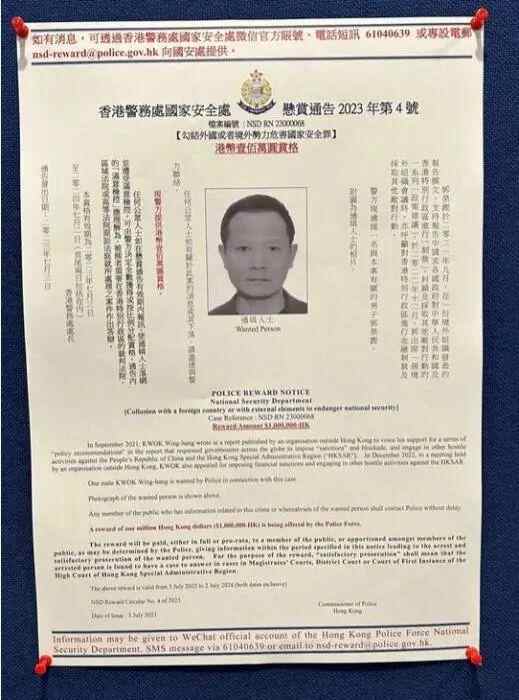 如有消息，可透過香港警務處國家安全處微信官方賬號、電話短訊 61040639 或專設電郵
nsd-reward@police.gov.hk 向國安處提供。
香港警務處國家安全處 懸賞通告 2023 年第 4 號
檔案編號：NSD RN 23000068
【勾結外國或者境外勢力危害國家安全罪】
港幣壹佰萬圓賞格
附圖為通緝人士的相片。
現警方提供港幣壹佰萬圓賞格。
本賞格有效期為二〇二三年七月三日
至二〇二四年七月二日（首尾兩日包括在內）
香港警務處處長
通告發出日期：二〇二三年七月三日
通緝人士
Wanted Person
POLICE REWARD NOTICE
National Security Department
[Collusion with a foreign country or with external elements to endanger national security]
Case Reference: NSD RN 23000068
Reward Amount $1,000,000-HK
In September 2021, KWOK Wing-hang wrote in a report published by an organisation outside Hong Kong to voice his support for a series of
"policy recommendations" in the report that requested governments across the globe to impose "sanctions" and blockade, and engage in other hostile
activities against the People's Republic of China and the Hong Kong Special Administrative Region ("HKSAR"). In December 2022, in a meeting held
by an organisation outside Hong Kong, KWOK also appealed for imposing financial sanctions and engaging in other hostile activities against the HKSAR.
One male KWOK Wing-hang is wanted by Police in connection with this case.
Photograph of the wanted person is shown above.
Any member of the public who has information related to this crime or whereabouts of the wanted person shall contact Police without delay.
A reward of one million Hong Kong dollars ($1,000,000-HK) is being offered by the Police Force.
The reward will be paid, either in full or pro-rata, to a member of the public, or apportioned amongst members of the
public, as may be determined by the Police, giving information within the period specified in this notice leading to the arrest and
satisfactory prosecution of the wanted person. For the purpose of the reward, "satisfactory prosecution" shall mean that the
arrested person is found to have a case to answer in cases in Magistrates' Courts, District Court or Court of First Instance of the
High Court of Hong Kong Special Administrative Region.
The above reward is valid from 3 July 2023 to 2 July 2024 (both dates inclusive)
NSD Reward Circular No. 4 of 2023
Date of Issue: 3 July 2023
Commissioner of Police
Hong Kong
Information may be given to WeChat official account of the Hong Kong Police Force National
Security Department, SMS message via 61040639 or email to nsd-reward@police.gov.hk.